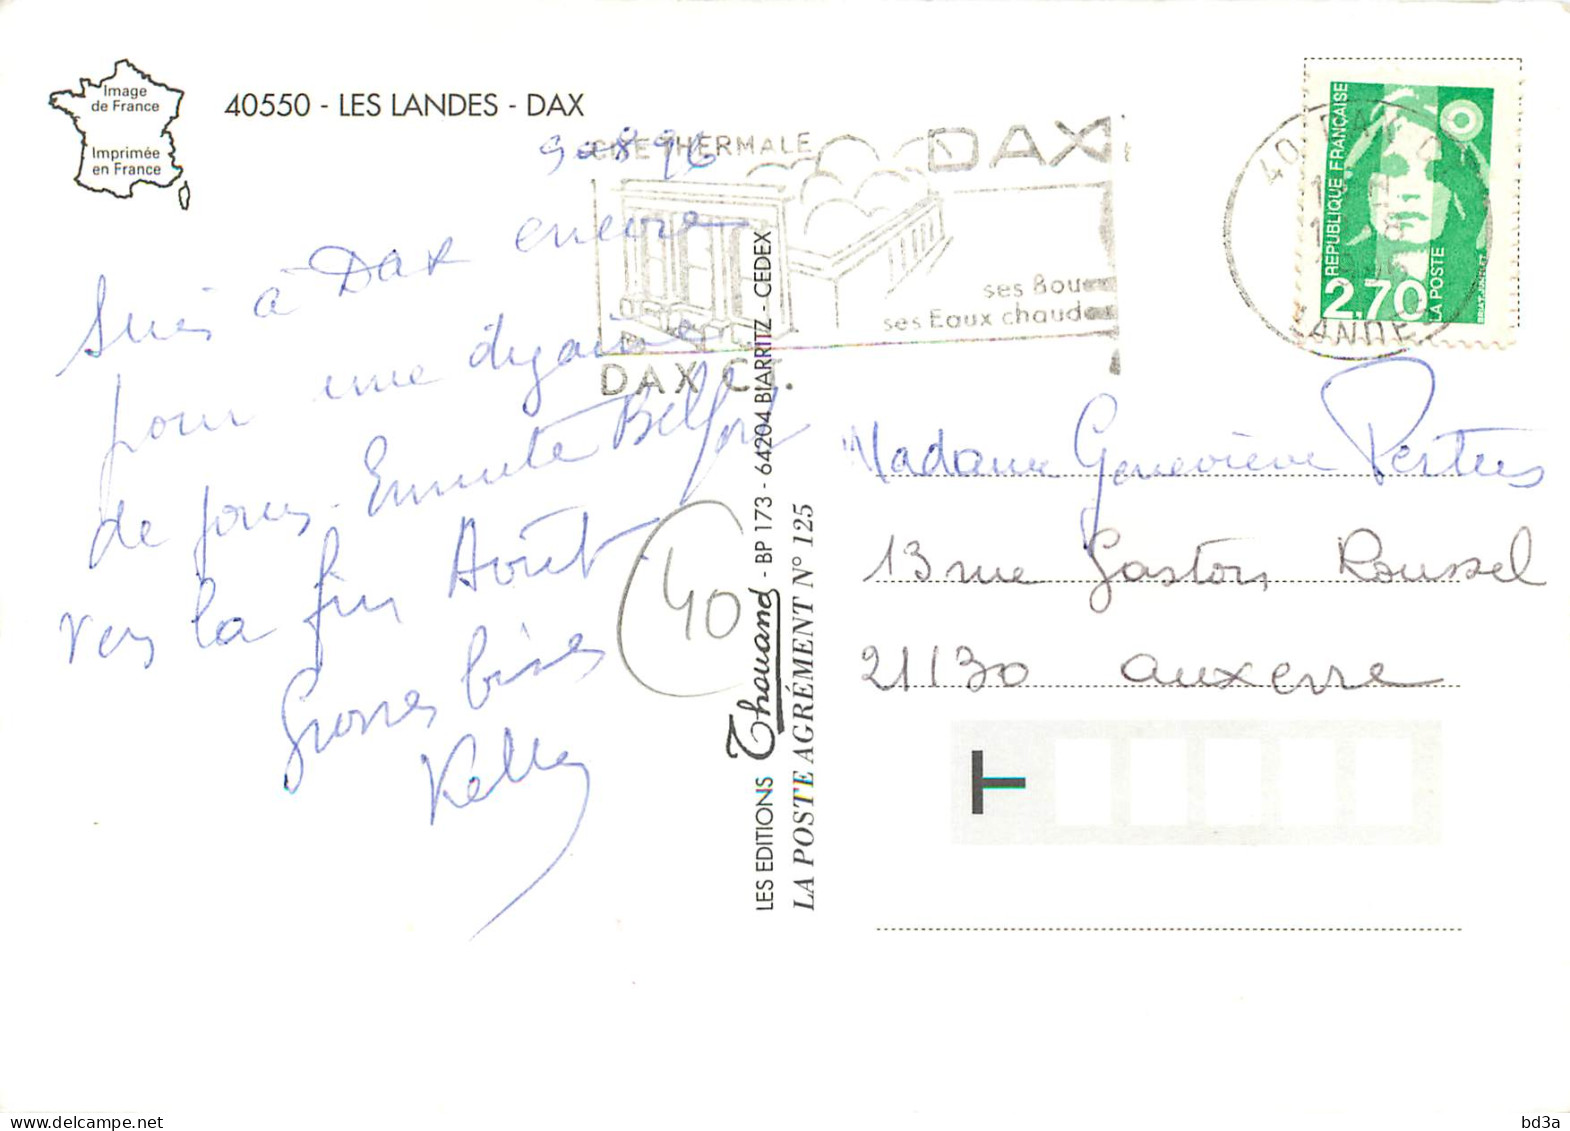 Image
de France
Imprimée
en France
40550 - LES LANDES - DAX
9-8 96
CITE THERMALE
DAX
ses Boues
ses Eaux chaudes
DAX C.T.
40 DAX
LANDES
RÉPUBLIQUE FRANÇAISE
2,70
LA POSTE
Suis à Dax encore
pour une dizaine
de jours. Ensuite Belfort
vers la fin Août.
Grosses bises
Kelly
40
LES EDITIONS Thouand - BP 173 - 64204 BIARRITZ - CEDEX
LA POSTE AGRÉMENT N° 125
Madame Geneviève Pertuis
13 rue Gaston Roussel
21130 Auxerre
T
bd3a